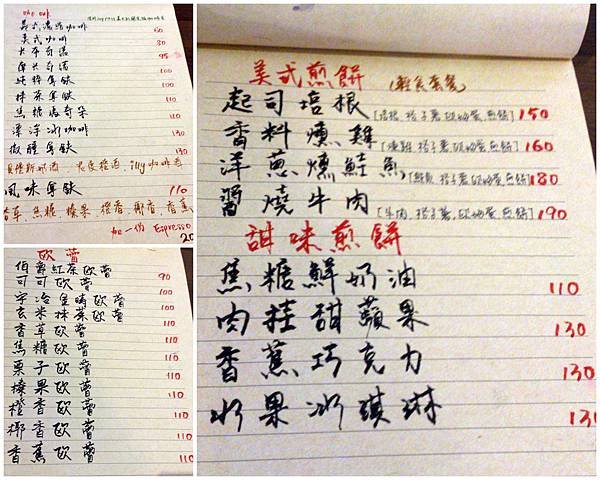 美式濃縮咖啡 60
美式咖啡 80
卡布奇諾 95
拿鐵 100
抹茶拿鐵 100
焦糖瑪奇朵 110
漂浮冰咖啡 130
微醺拿鐵 130
風味拿鐵 110
香草、焦糖、榛果、橙香、椰香、香蕉
加一份 Espresso 20
歐蕾
伯爵紅茶歐蕾 90
可可歐蕾 100
宇治金時歐蕾 100
玄米抹茶歐蕾 100
香草歐蕾 110
焦糖歐蕾 110
栗子歐蕾 110
榛果歐蕾 110
橙香歐蕾 110
椰香歐蕾 110
香蕉歐蕾 110
美式煎餅 (輕食套餐)
起司培根 [培根.橙子薯.歐姆蛋.煎餅] 150
香料燻雞 [燻雞.橙子薯.歐姆蛋.煎餅] 160
洋蔥燻鮭魚 [鮭魚.橙子薯.歐姆蛋.煎餅] 180
醬燒牛肉 [牛肉.橙子薯.歐姆蛋.煎餅] 190
甜味煎餅
焦糖鮮奶油 110
肉桂甜蘋果 130
香蕉巧克力 130
水果冰淇淋 13